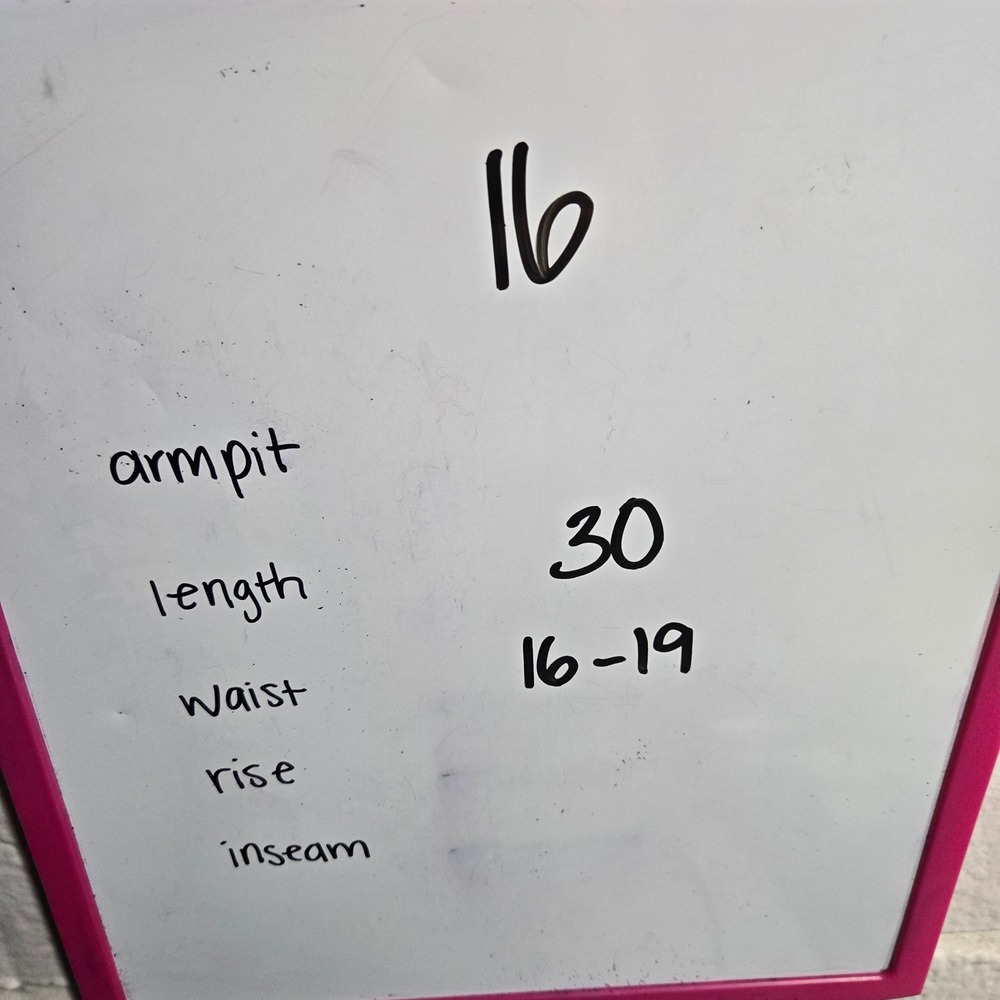 16
armpit
length 30
waist 16-19
rise
inseam